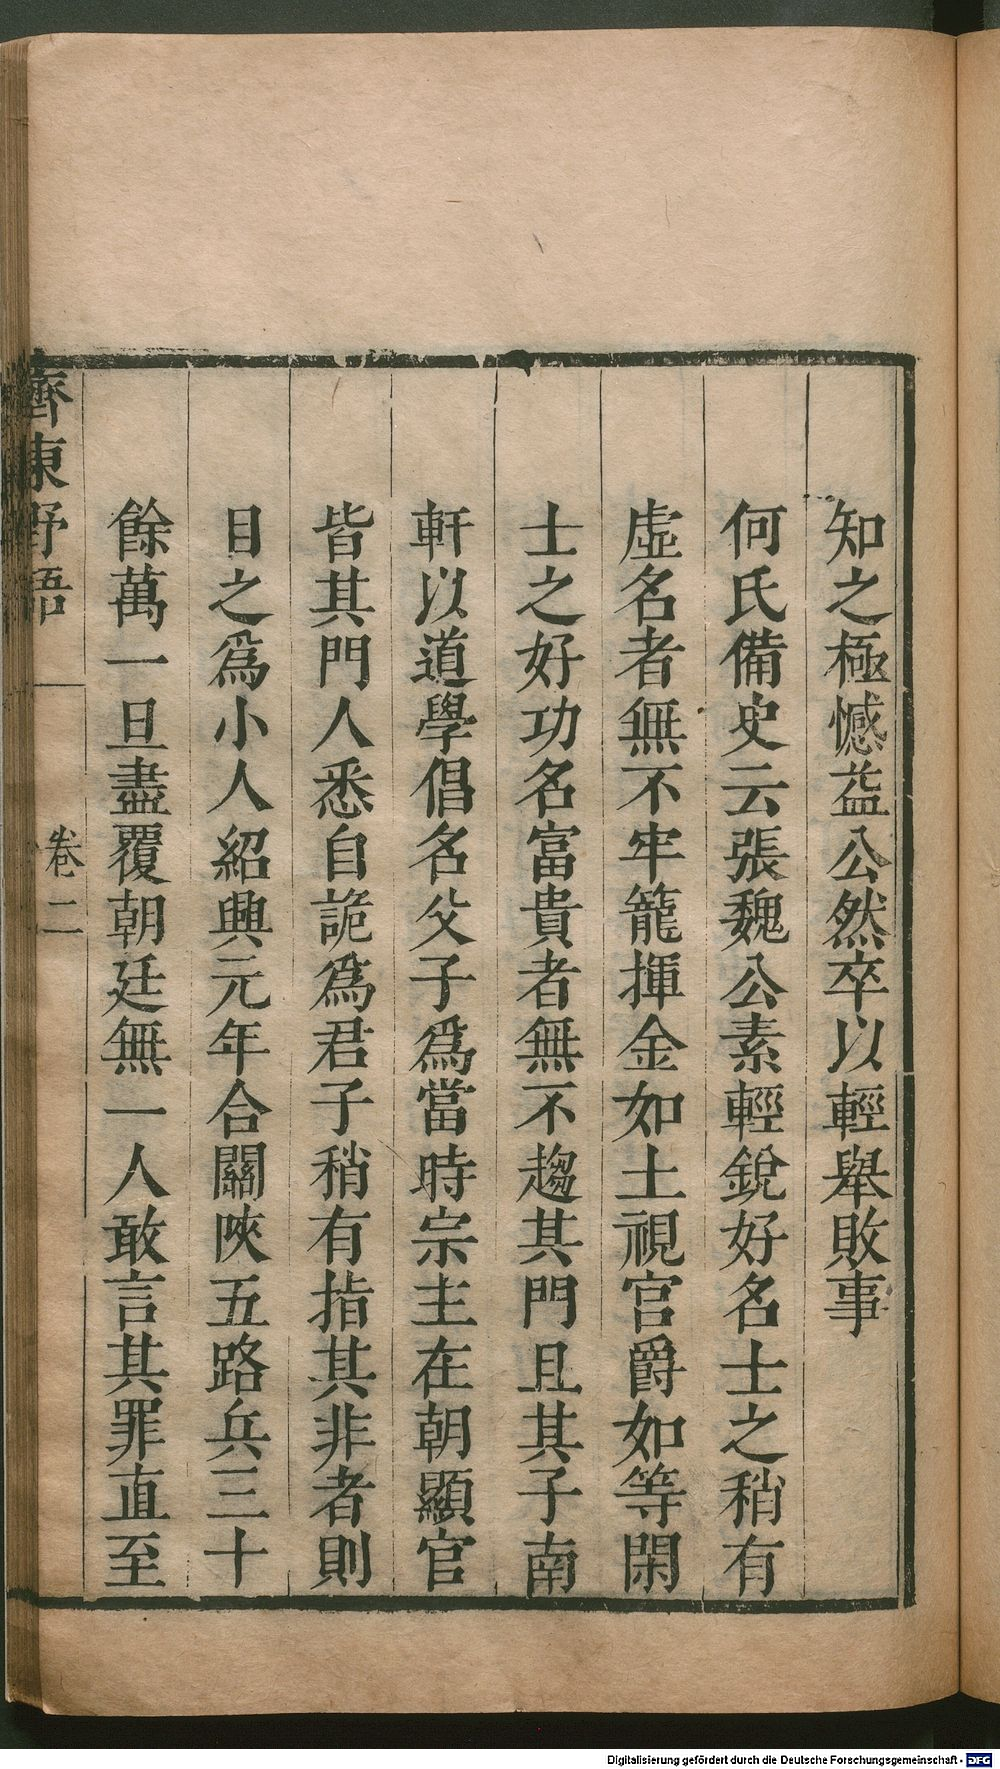 知之極憾益公然卒以輕舉敗事
何氏備史云張魏公素輕銳好名士之稍有
虛名者無不牢籠揮金如土視官爵如等閑
士之好功名富貴者無不趨其門且其子南
軒以道學倡名父子爲當時宗主在朝顯官
皆其門人悉自詭爲君子稍有指其非者則
目之爲小人紹興元年合關陜五路兵三十
餘萬一旦盡覆朝廷無一人敢言其罪直至
齊東野語 卷二
Digitalisierung gefördert durch die Deutsche Forschungsgemeinschaft - DFG